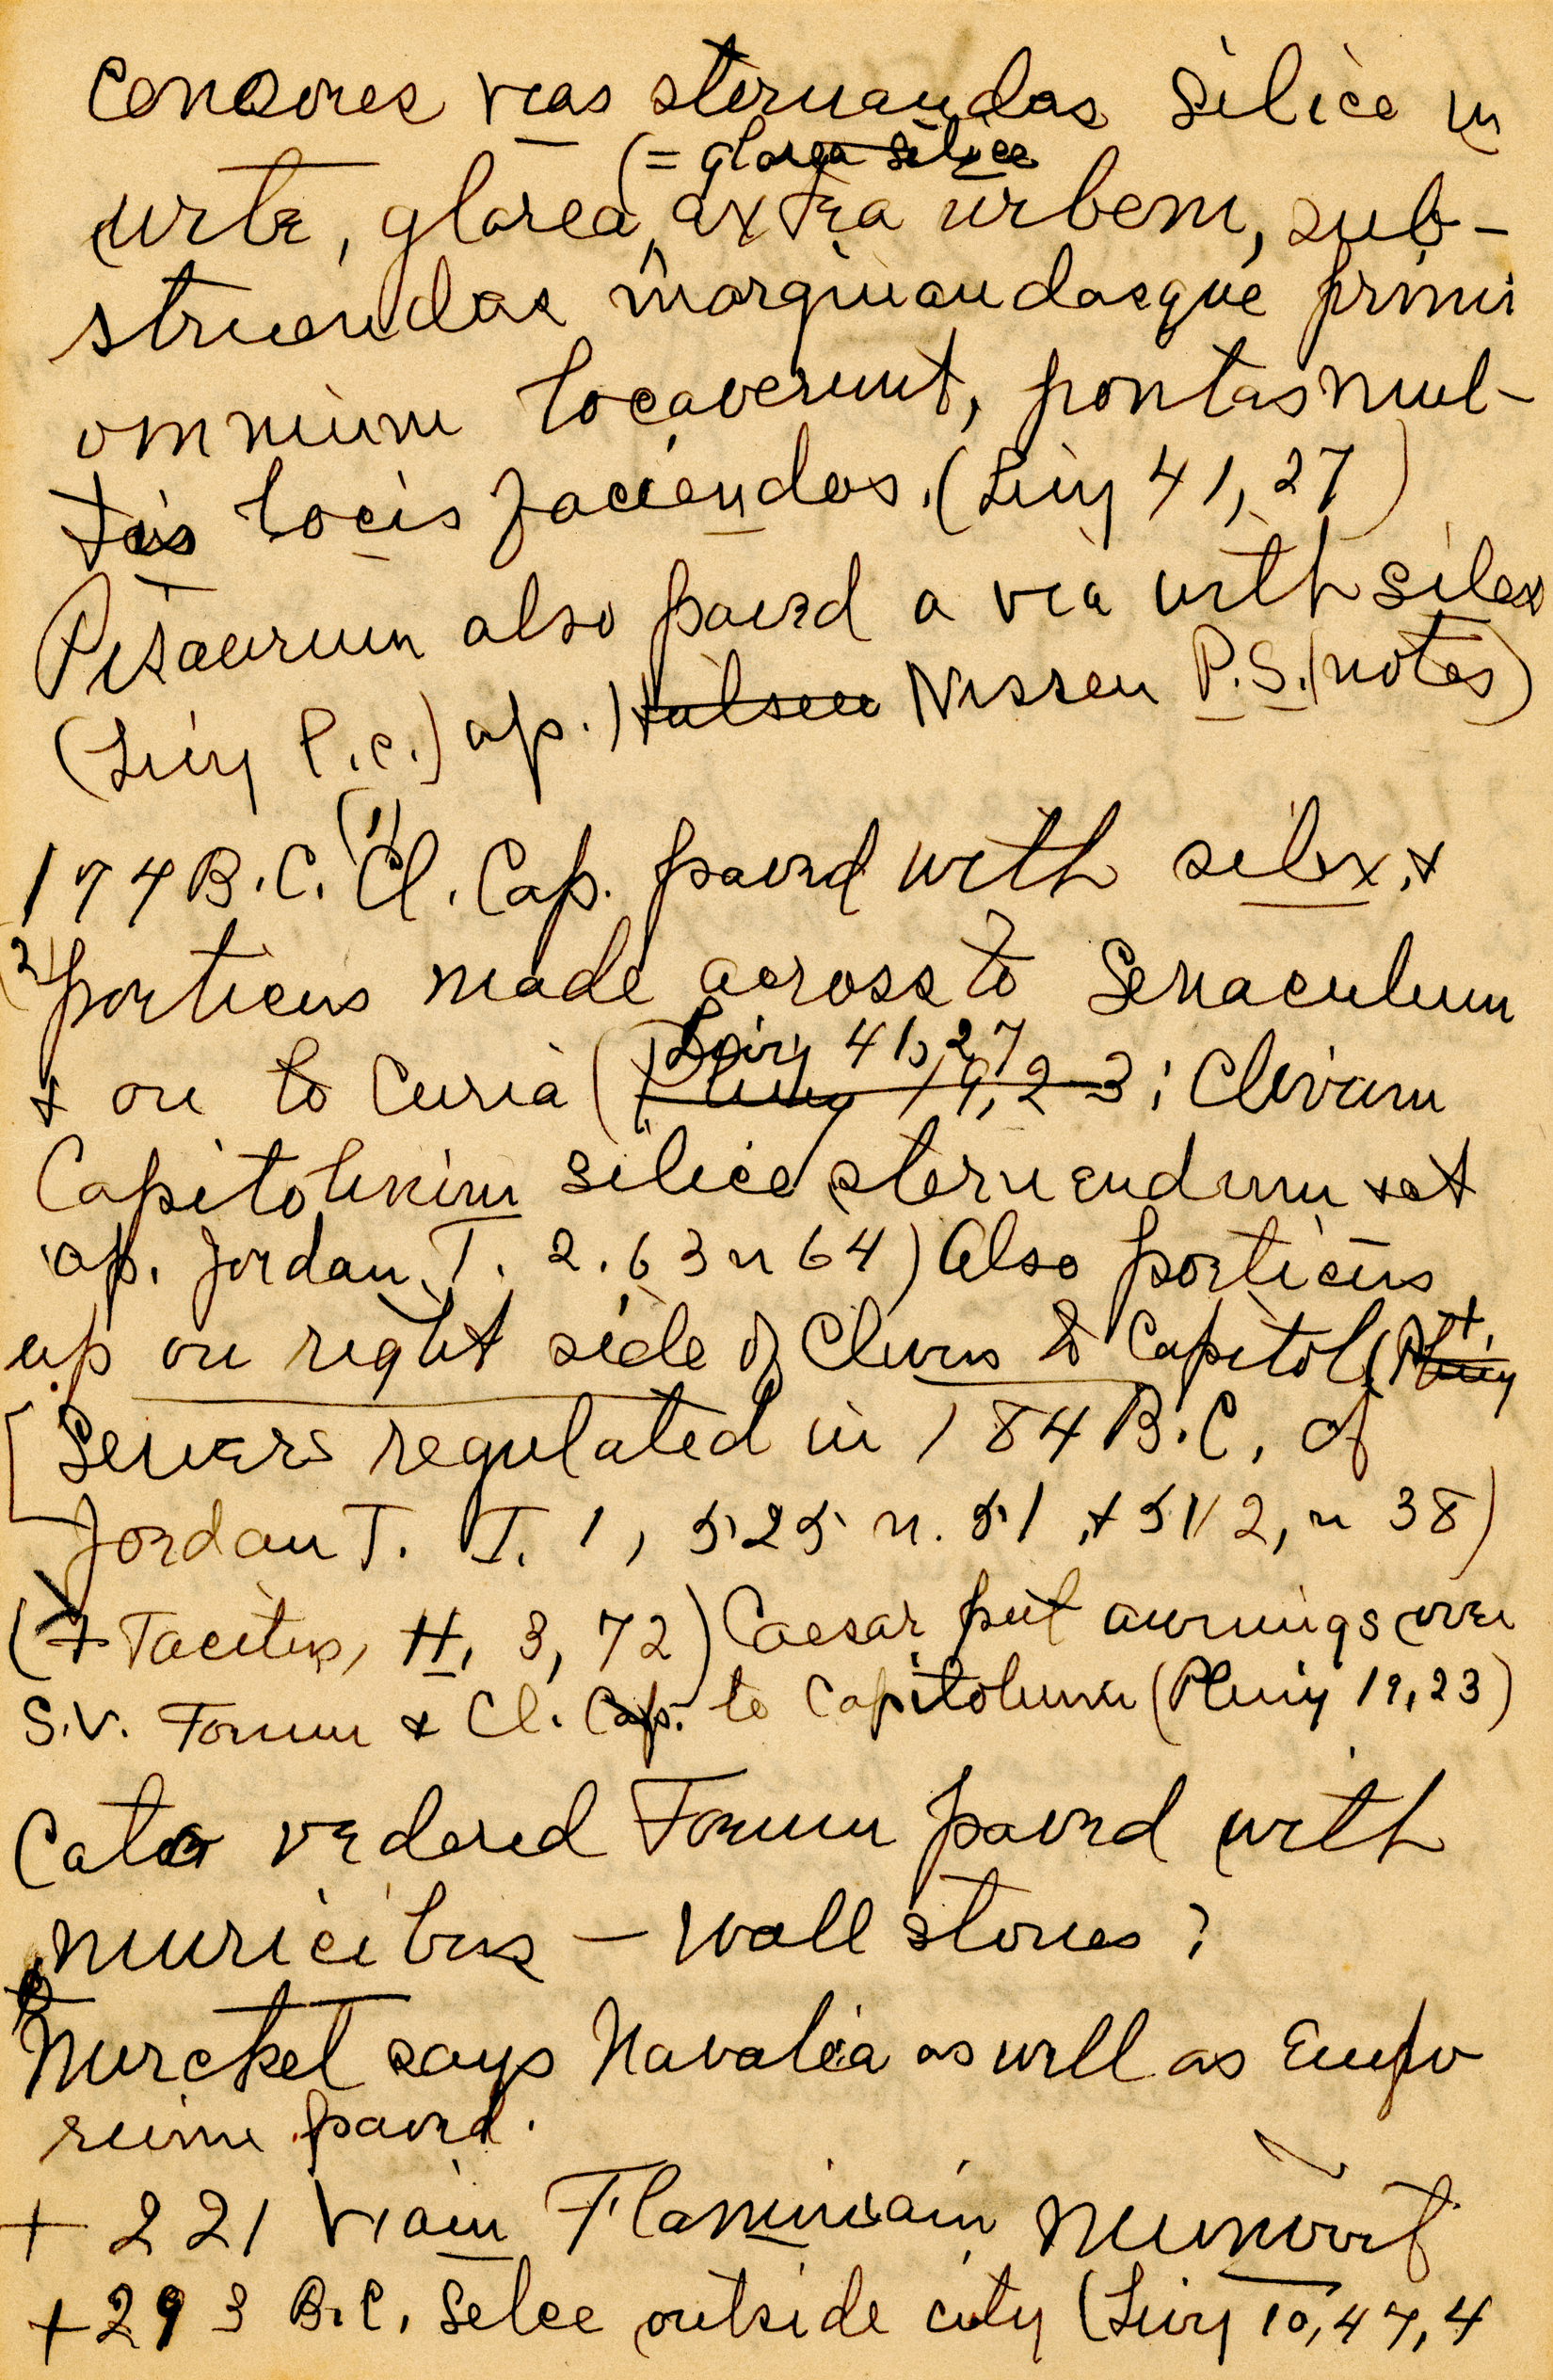 Censores vias sternandas silice in
(= glarea silice
urbe, glarea extra urbem, sub-
struendas marginandasque primi
omnium locaverunt, pontas mul-
tis locis faciendos. (Livy 41, 27)
Pisaurum also paved a via with silex
(Livy l.c.) ap. Hülsen Nissen P.S. (notes)
174 B.C. (1) Cl. Cap. paved with silex, +
(2) porticus made across to Senaculum
Livy 41, 27
+ on to Curia (Pliny 19, 23; Clivum
Capitolinum silice sternendum + et
ap. Jordan T. 2. 63 n 64) Also porticus
up on right side of Clivus to Capitol (Pliny
[Sewers regulated in 184 B.C. cf
Jordan T. I. 1, 525 n. 51, + 51/2, n 38)
(+ Tacitus, H. 3, 72) Caesar put awnings over
S.V. Forum & Cl. Cap. to Capitolium (Pliny 19, 23)
Cato ordered Forum paved with
muricibus – wall stones?
Merckel says Navalia as well as Empo
rium paved.
+ 221 Viam Flaminiam munivit
+ 293 B.C. Selce outside city (Livy 10, 47, 4